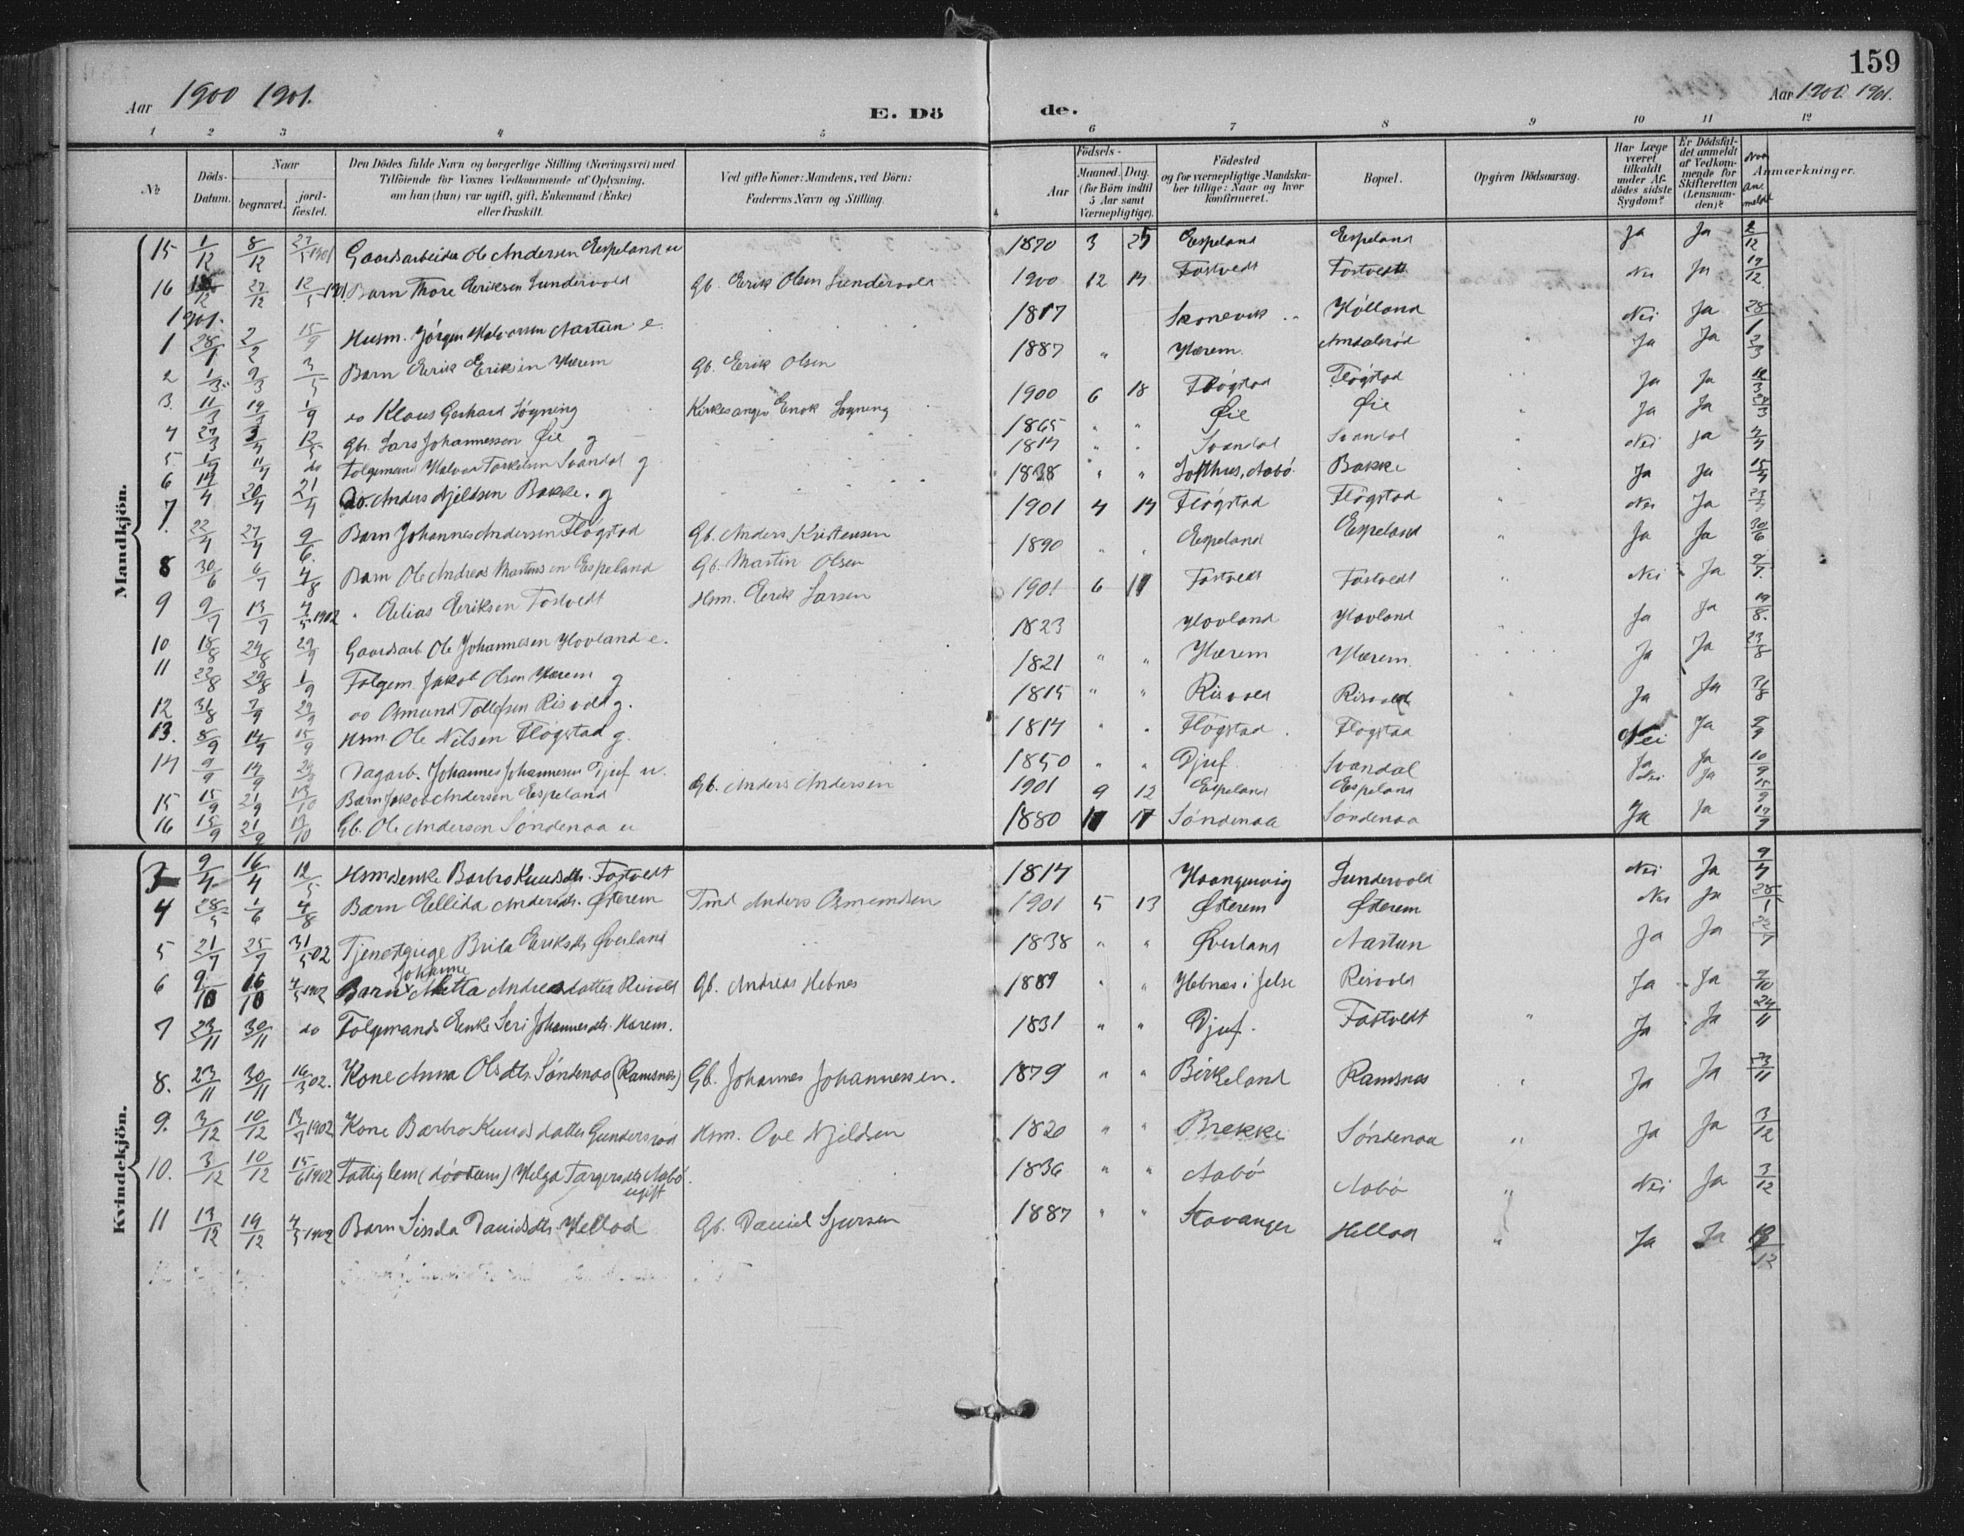 159
Aar 1900 1901.
E. Dö
de.
Aar 1900. 1901.
1 2 3 4 5 6 7 8 9 10 11 12
No
Döds-Datum.
Naar
begravet.
jord-fæstet.
Den Dödes fulde Navn og borgerlige Stilling (Næringsvei) med
Tilföiende for Voxnes Vedkommende af Oplysning,
om han (hun) var ugift, gift, Enkemand (Enke)
eller fraskilt.
Ved gifte Koner: Mandens, ved Börn:
Faderens Navn og Stilling.
Födsels-
Aar
Maaned. Dag.
(for Börn indtil
5 Aar samt
Værnepligtige).
Födested
og for værnepligtige Mandska-
ber tillige: Naar og hvor
konfirmeret.
Bopæl.
Opgiven Dödsaarsag.
Har Læge
været
tilkaldt
under Af-
dödes sidste
Sygdom?
Er Dödsfal-
det anmeldt
af Vedkom-
mende for
Skifteretten
(Lensman-
den)?
Naar an-meldt
Anmærkninger.
Mandkjön.
15 1/12 8/12 27/5 1901 Gaardsarbeider Ole Andersen Espeland u 1870 3 25 Espeland Espeland Ja Ja 2/12
16 27/12 12/5 1901 Barn Thore Eriksen Sundervold Gb. Erik Olsen Sundervold 1900 12 14 Fostvedt Fostvedt Nei Ja 19/12
1901.
1 28/1 2/2 15/9 Husm. Jörgen Halvorsen Nastun e. 1817 Skonevik Hölland Nei Ja 28/1
2 1/3 9/3 3/5 Barn Erik Eriksen Hærem Gb. Erik Olsen 1887 " Hærem. Amdalsrød Ja Ja 2/3
3. 11/3 19/3 1/9 do Klaus Gerhard Sögning Kirkesanger Enok Sogning 1900 6 18 Flögstad Flögstad Ja Ja 12/3
4 27/3 3/4 12/5 Gbr. Lars Johannessen Øie g 1865 " " Øie Øie Ja Ja
5 1/4 11/4 do Folgemand Halvor Torkelsen Svandal g 1814 " " Svandal Svandal Nei Ja 2/4
6 14/4 20/4 21/4 do. Anders Njeldsen Bakke. g 1838 " " Lofthus, Aabö Bakke Ja Ja 15/4
7 22/4 27/4 9/6 Barn Johannes Andersen Flögstad Gb. Anders Kristensen 1901 4 14 Flögstad Flögstad Nei Ja 23/4
8 30/6 6/7 4/8 Barn Ole Andreas Martinsen Espeland Gb. Martin Olsen 1890 " " Espeland Espeland Ja Ja 30/6
9 9/7 13/7 4/5 1902 " Elias Eriksen Fostvedt Hsm. Erik Larsen 1901 6 11 Fostvedt Fostvedt Nei Ja 9/7.
10 18/8 24/8 29/9 Gaardsarb Ole Johannesen Hovland e. 1823 Hovland Hovland Ja Ja 19/8.
11 23/8 29/8 1/9 Folgem. Jakob Olsen Hærem g 1821 " " Hærem Hærem Ja Ja 23/8
12 31/8 7/9 29/9 do Osmund Tollefsen Risvold g. 1815 " " Risvold Risvold Ja Ja 31/8
13. 8/9 14/9 15/9 Hsm Ole Nilsen Flögstad g. 1814 " " Flögstad Flögstad Nei Ja 9/9
14 9/9 14/9 29/9 Dagarb. Johannes Johannesen Djuf u. 1850 " " Djuf Svandal Ja Ja 10/9
15 15/9 21/9 13/10 Barn Jakob Andersen Espeland Gb. Anders Andersen 1901 9 12 Espeland Espeland Nei Ja 15/9
16 15/9 21/9 13/10 Gb. Ole Andersen Söndenaa u 1880 11 17 Söndenaa Söndenaa Ja Ja 17/9
Kvindekjön.
3 9/4 16/4 12/5 Husmdsenke Barbro Knudsdtr. Fostvedt 1814 Haangervig Sundervold Nei Ja 9/4
4 28/5 1/6 4/8 Barn Ellida Andersdtr. Østerem Tmd Anders Osmundsen 1901 5 13 Østerem Østerem Nei Ja
5 21/7 25/7 31/5 02 Tjenestpige Brita Eriksdtr Øverland 1838 " " Øverland Nastun Ja Ja
Johanne
6 9/10 16/10 4/5 1902 Barn Metta Andreasdatter Risvold Gb. Andreas Hebnes 1889 " " Hebnes i Jelse Risvold Ja Ja 9/10
7 23/11 30/11 do Folgemands Enke Seri Johannesdtr. Hærem. 1831 " " Djuf. Fostvedt " Ja Ja 24/11
8. 23/11 30/11 16/3 02. Kone Anna Olsdtr. Söndenaa (Ramsnes) Gb. Johannes Johannessen. 1879 " " Birkeland Ramsnes Ja Ja 23/11
9. 3/12 10/12 13/7 1902 Kone Barbro Knudsdatter Gundersröd Hsm. Ove Njeldsen 1820 " " Brekke Söndenaa " Ja Ja 3/12
10. 3/12 10/12 15/6 1902 Fattiglem (dövstum) Helga Targersdtr Aabö. 1836 " " Aabö Aabö " Nei Ja 3/12
ugift
11 13/12 19/12 4/5 1902 Barn Sisela Danidsdtr. Helland Gb. Daniel Sjursen 1887 " " Stavanger Helland " Ja Ja